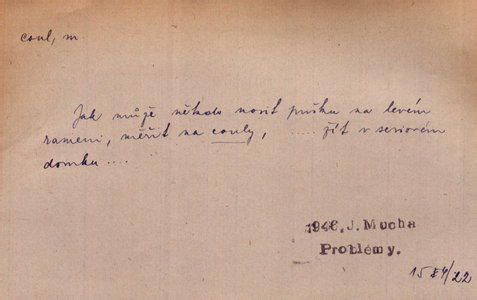 coul, m.
Jak může někdo nosit pušku na levém
rameni, měřit na couly, ..... žít v seriovém
domku ....
1946, J. Mucha
Problémy.